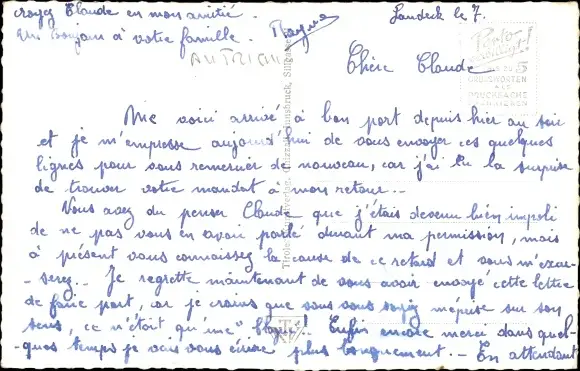 croyez Claude en mon amitié.
Un bonjour à votre famille.
AUTRICHE
Landeck le 7.
Porto
5
GRUSSWORTEN
ALS
Chère Claude
Me voici arrivé à bon port depuis hier au soir
et je m'empresse aujourd'hui de vous envoyer ces quelques
lignes pour vous remercier de nouveau, car j'ai eu la surprise
de trouver votre mandat à mon retour..
Vous avez du penser Claude que j'étais devenu bien impoli
de ne pas vous en avoir parlé durant ma permission, mais
à présent vous connaissez la cause de ce retard et vous m'excu-
-serez. - Je regrette maintenant de vous avoir envoyé cette lettre
de faire part, car je crains que vous vous soyiez méprise sur son
sens, ce n'était qu'une "blague"! Enfin encore merci dans quel-
-ques temps je vais vous écrire plus longuement. - En attendant
Innsbruck, Sillgasse